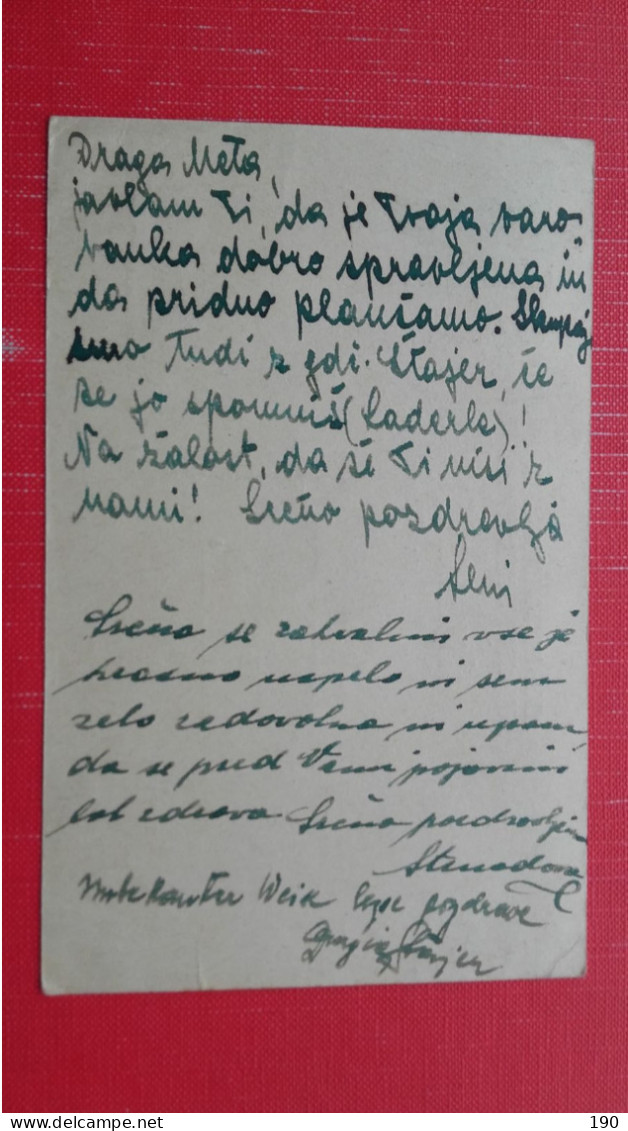 Draga Meta,
javljam Ti, da je Tvoja varo-
vanka dobro spravljena in
da pridno plavčamo. Skupaj
smo tudi z gdč. Štajer, če
se jo spomniš (Laderle)!
Na žalost, da še Ti nisi z
nami! Srčno pozdravlja
Leni
Srčno se zahvalim vse je
krasno uspelo ni sem
zelo zadovoljna ni upam,
da se pred Vami pojavim
bolj zdrava Srčno pozdravljam
Unbekannter Weise lepe pozdrave
Štajer
delcampe.net
190